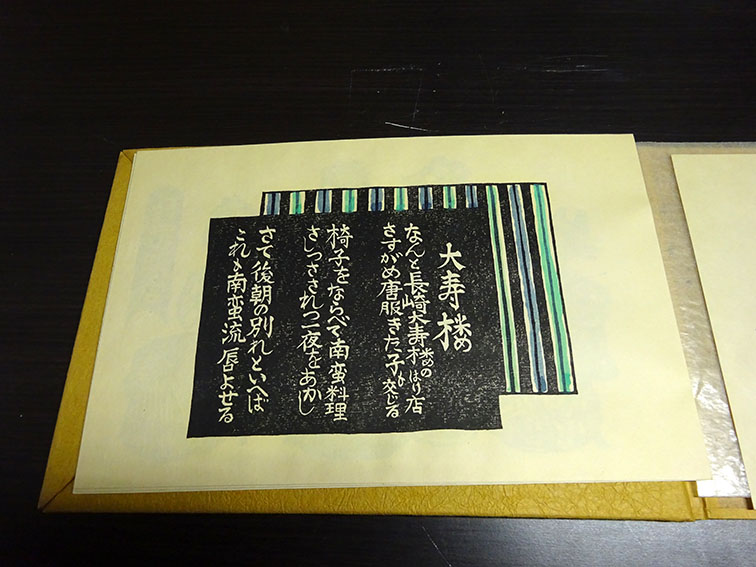 大寿楼
なんと長崎大寿楼のはり店
さすがめ唐服きた子も交じる
椅子をならべて南蛮料理
さしつさされつ一夜をあかし
さて後朝の別れといへば
これも南蛮流 唇よせる